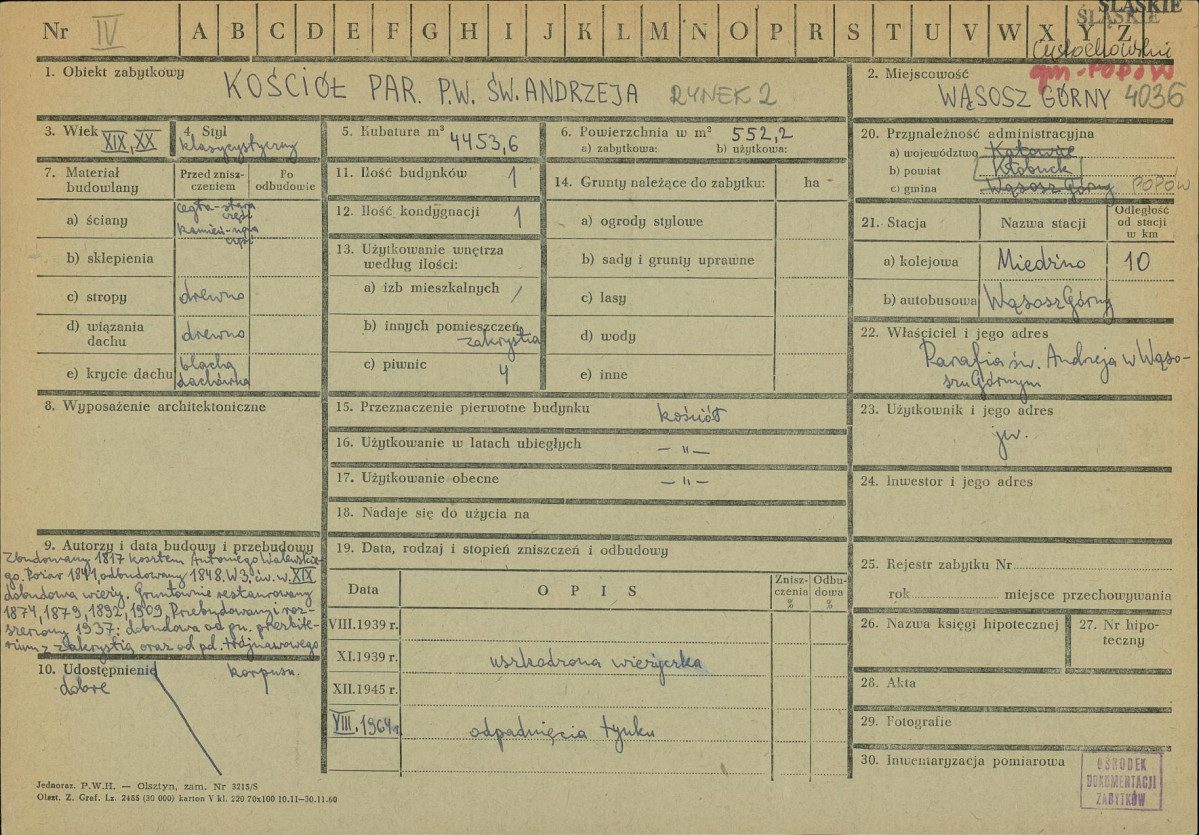 Nr IV A B C D E F G H I J K L M N O P R S T U V W X Y Z
ŚLĄSKIE
ŚLĄSKIE
Częstochowskie
gm. POPÓW
1. Obiekt zabytkowy
KOŚCIÓŁ PAR. P.W. ŚW. ANDRZEJA RYNEK 2
2. Miejscowość
WĄSOSZ GÓRNY 4036
3. Wiek XIX, XX
4. Styl
klasycystyczny
5. Kubatura m³ 4453,6
6. Powierzchnia w m² 552,2
a) zabytkowa: b) użytkowa:
7. Materiał budowlany
Przed znisz-
czeniem
Po
odbudowie
a) ściany
cegła - stara
część
kamień - nowa
część
b) sklepienia
c) stropy drewno
d) wiązania
dachu drewno
e) krycie dachu blacha
dachówka
8. Wyposażenie architektoniczne
9. Autorzy i data budowy i przebudowy
Zbudowany 1817 kosztem Antoniego Walewskie-
go. Pożar 1841, odbudowany 1848. W 3. ćw. w. XIX
dobudowa wieży. Gruntownie restaurowany
1874, 1879, 1892, 1909. Przebudowany i roz-
szerzony 1937: dobudowa od pn. prezbite-
rium z zakrystią oraz od pd. trójnawowego
korpusu.
10. Udostępnienie
dobre
11. Ilość budynków 1
12. Ilość kondygnacji 1
13. Użytkowanie wnętrza
według ilości:
a) izb mieszkalnych /
b) innych pomieszczeń
zakrystia
c) piwnic 4
14. Grunty należące do zabytku: ha -
a) ogrody stylowe
b) sady i grunty uprawne
c) lasy
d) wody
e) inne
15. Przeznaczenie pierwotne budynku kościół
16. Użytkowanie w latach ubiegłych — " —
17. Użytkowanie obecne — " —
18. Nadaje się do użycia na
19. Data, rodzaj i stopień zniszczeń i odbudowy
Data
O P I S
Znisz-
czenia
%
Odbu-
dowa
%
VIII.1939 r.
XI.1939 r. uszkodzona wieżyczka
XII.1945 r.
VIII.1964 r. odpadnięcia tynku
20. Przynależność administracyjna
a) województwo Katowice
b) powiat Kłobuck
c) gmina Wąsosz Górny POPÓW
21. Stacja
Nazwa stacji
Odległość
od stacji
w km
a) kolejowa Miedźno 10
b) autobusowa Wąsosz Górny
22. Właściciel i jego adres
Parafia św. Andrzeja w Wąso-
szu Górnym
23. Użytkownik i jego adres
jw.
24. Inwestor i jego adres
25. Rejestr zabytku Nr
rok miejsce przechowywania
26. Nazwa księgi hipotecznej
27. Nr hipo-
teczny
28. Akta
29. Fotografie
30. Inwentaryzacja pomiarowa
OŚRODEK
DOKUMENTACJI
ZABYTKÓW
Jednoraz. P.W.H. — Olsztyn, zam. Nr 3215/S
Olszt. Z. Graf. Lz. 2485 (30 000) karton V kl. 220 70x100 10.11—30.11.60